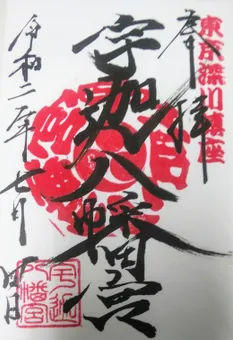 東京深川鎮座
奉拝
宇迦八幡宮
令和二年七月
宇迦
八幡宮